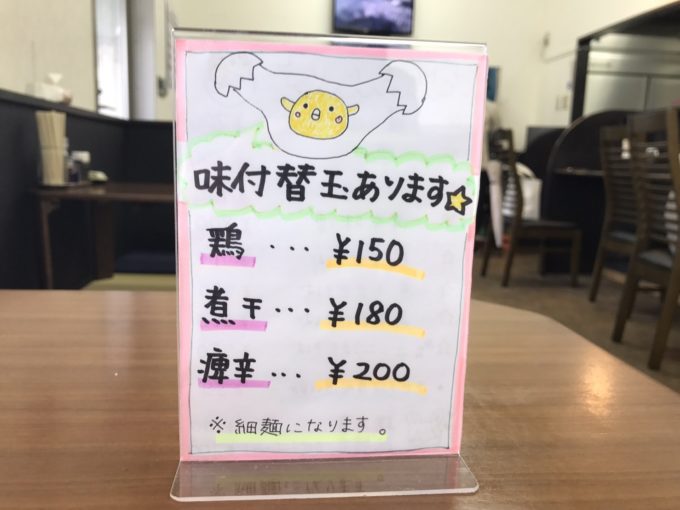 味付替玉あります☆
鶏 ... ¥150
煮干 ... ¥180
痺辛 ... ¥200
※細麺になります。